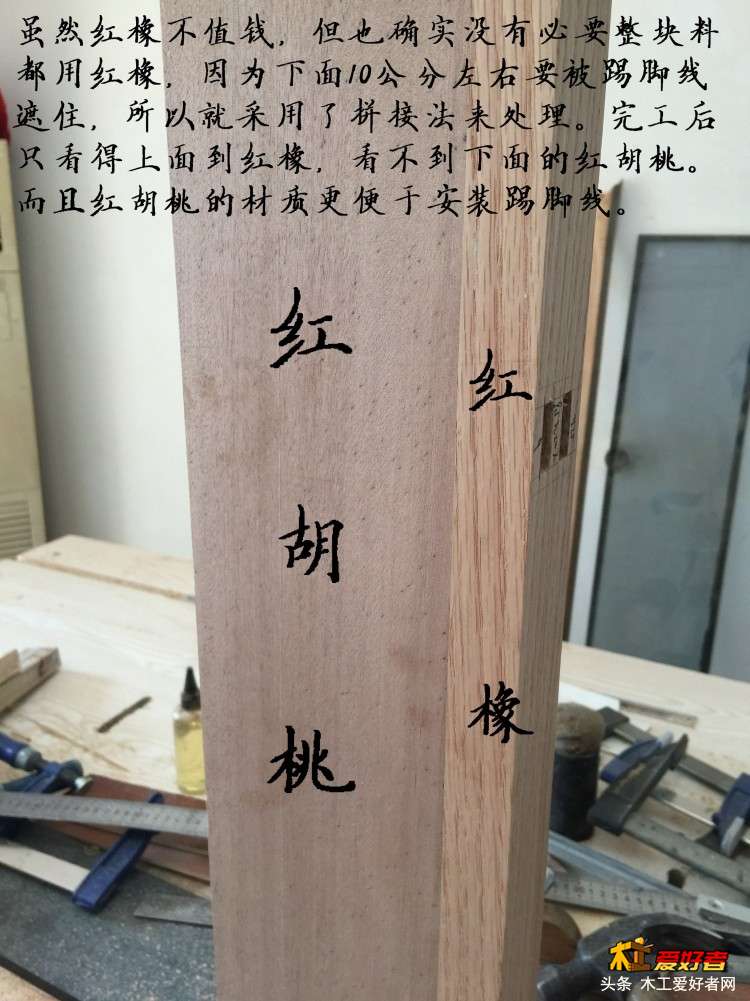 虽然红橡不值钱，但也确实没有必要整块料
都用红橡，因为下面10公分左右要被踢脚线
遮住，所以就采用了拼接法来处理。完工后
只看得上面到红橡，看不到下面的红胡桃。
而且红胡桃的材质更便于安装踢脚线。
红胡桃
红橡
木工爱好者
头条 木工爱好者网